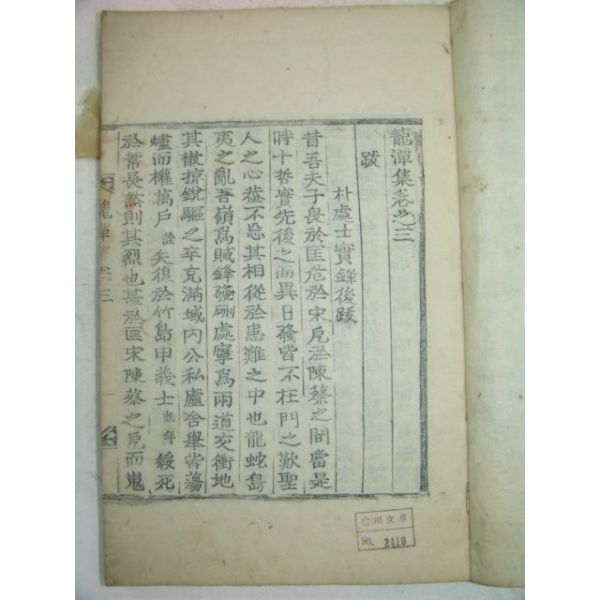 龍潭集卷之三
跋
朴處士實錄後跋
昔吾夫子畏於匡危於宋戹於陳蔡之間當是
時十哲實先後之而異日發皆不在門之歎聖
人之心蓋不忘其相從於患難之中也龍蛇島
夷之亂吾嶺爲賊鋒 處寧爲兩道交衝地
其散掠銳驅之卒充滿域內公私廬舍擧皆蕩
爐而權萬戶 矢復於竹島申義士 年 綏死
於常長然則其烈也甚於匡宋陳蔡之戹而鬼
龍潭集卷三
文庫
No. 2410